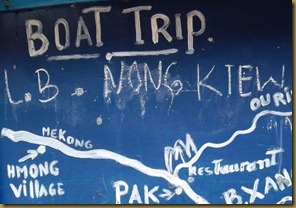 BOAT TRIP.
L.B - NONG KIEW
OURI
MEKONG
HMONG
VILLAGE
RESTAURANT
PAK
B.XAN